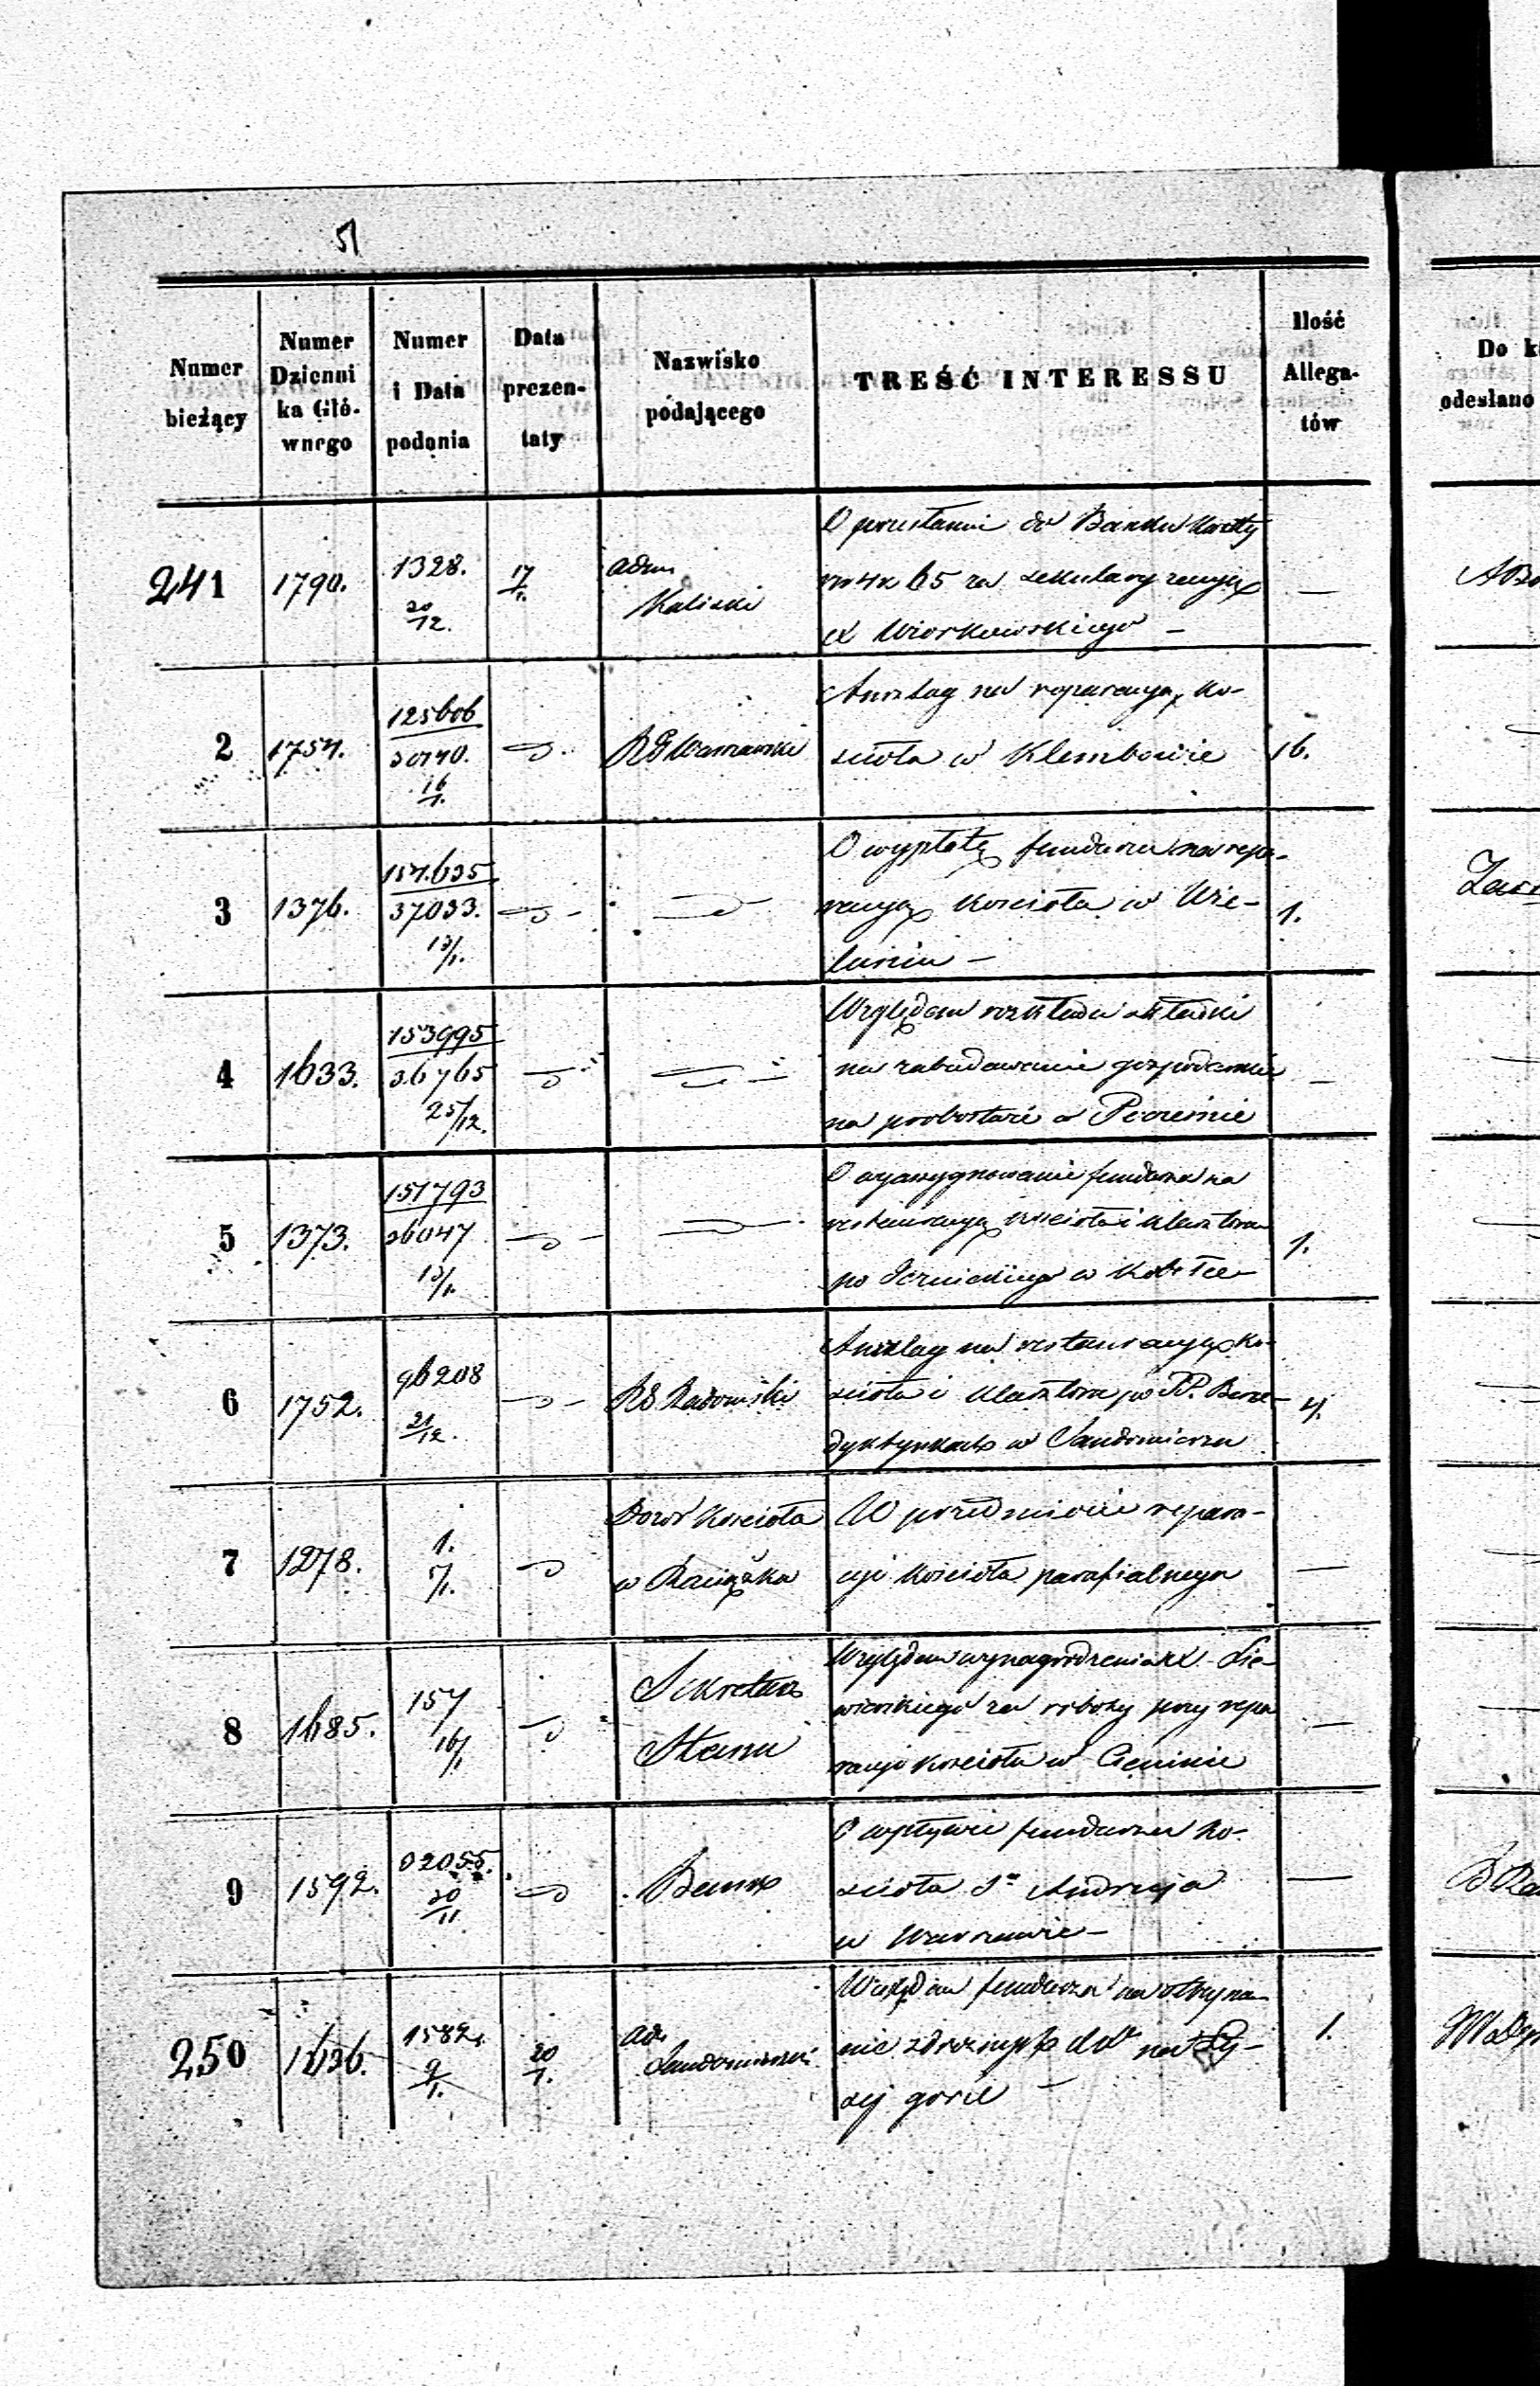 51
Numer bieżący
Numer Dzienni ka Głó- wnego
Numer i Data podania
Data prezen- taty
Nazwisko podającego
TREŚĆ INTERESSU
Ilość Allega- tów
Do k
odesłano
241
1790.
1328.
20/12.
17/1.
Adm
Kaliski
O przesłanie do Banku kwoty
65 za sekularyzacyą
X Wiorkowskiego –
—
2
1754.
125606
30740.
16/1.
RG Warszawski
Anszlag na reparacyą Ko-
scioła w Klembowie
16.
3
1376.
157.635
37033.
13/1.
O wypłatę funduszu na repa-
racyą Kościoła w Wie-
luniu –
1.
4
1633.
153995
36765
25/12.
Względem rozkładu składki
na zabudowanie gospodarskie
na probostwie w
–
5
1373.
151793
36047
13/1.
O wyasygnowanie funduszu na
restauracyą kościoła i klasztoru
po w
1.
6
1752.
96208
21/12.
RG Radomski
Anszlag na restauracyą Ko-
scioła i Klasztoru po PP. Bene-
dyktynkach w Sandomierzu
4.
7
1278.
1.
7/1.
Dozór Kościoła
w Raciążku
W przedmiocie repara-
cyi Kościoła parafialnego
—
8
1685.
157
16/1
Sekretarz
Stanu
Względem wynagrodzenia
za roboty przy repa
racyi Kościoła w Cieninie
—
9
1592.
02055.
20/11
O wpływie funduszu Ko-
scioła Sgo Andrzeja
w Warszawie –
—
250
1636.
1582.
9/1.
20/1.
Adm
Sandomierski
Względem funduszu na utrzyma
nie zdrożnych na Ły-
sej górze –
1.